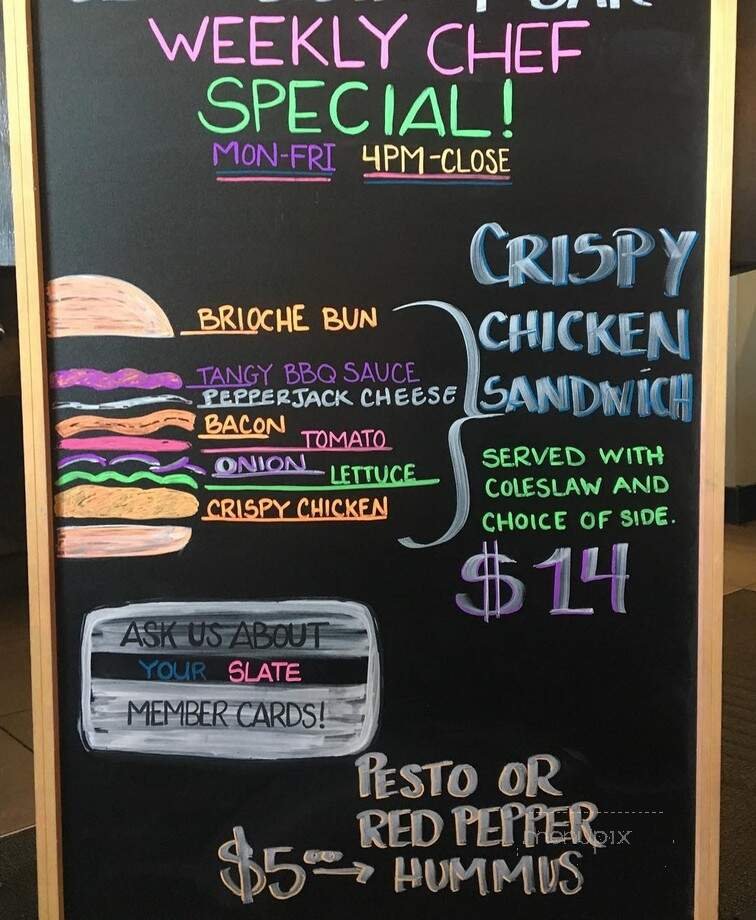 WEEKLY CHEF
SPECIAL!
MON-FRI 4PM-CLOSE
CRISPY
CHICKEN
SANDWICH
BRIOCHE BUN
TANGY BBQ SAUCE
PEPPERJACK CHEESE
BACON
TOMATO
ONION
LETTUCE
CRISPY CHICKEN
SERVED WITH
COLESLAW AND
CHOICE OF SIDE.
$14
ASK US ABOUT
YOUR SLATE
MEMBER CARDS!
PESTO OR
RED PEPPER
$5.00 → HUMMUS
menupix